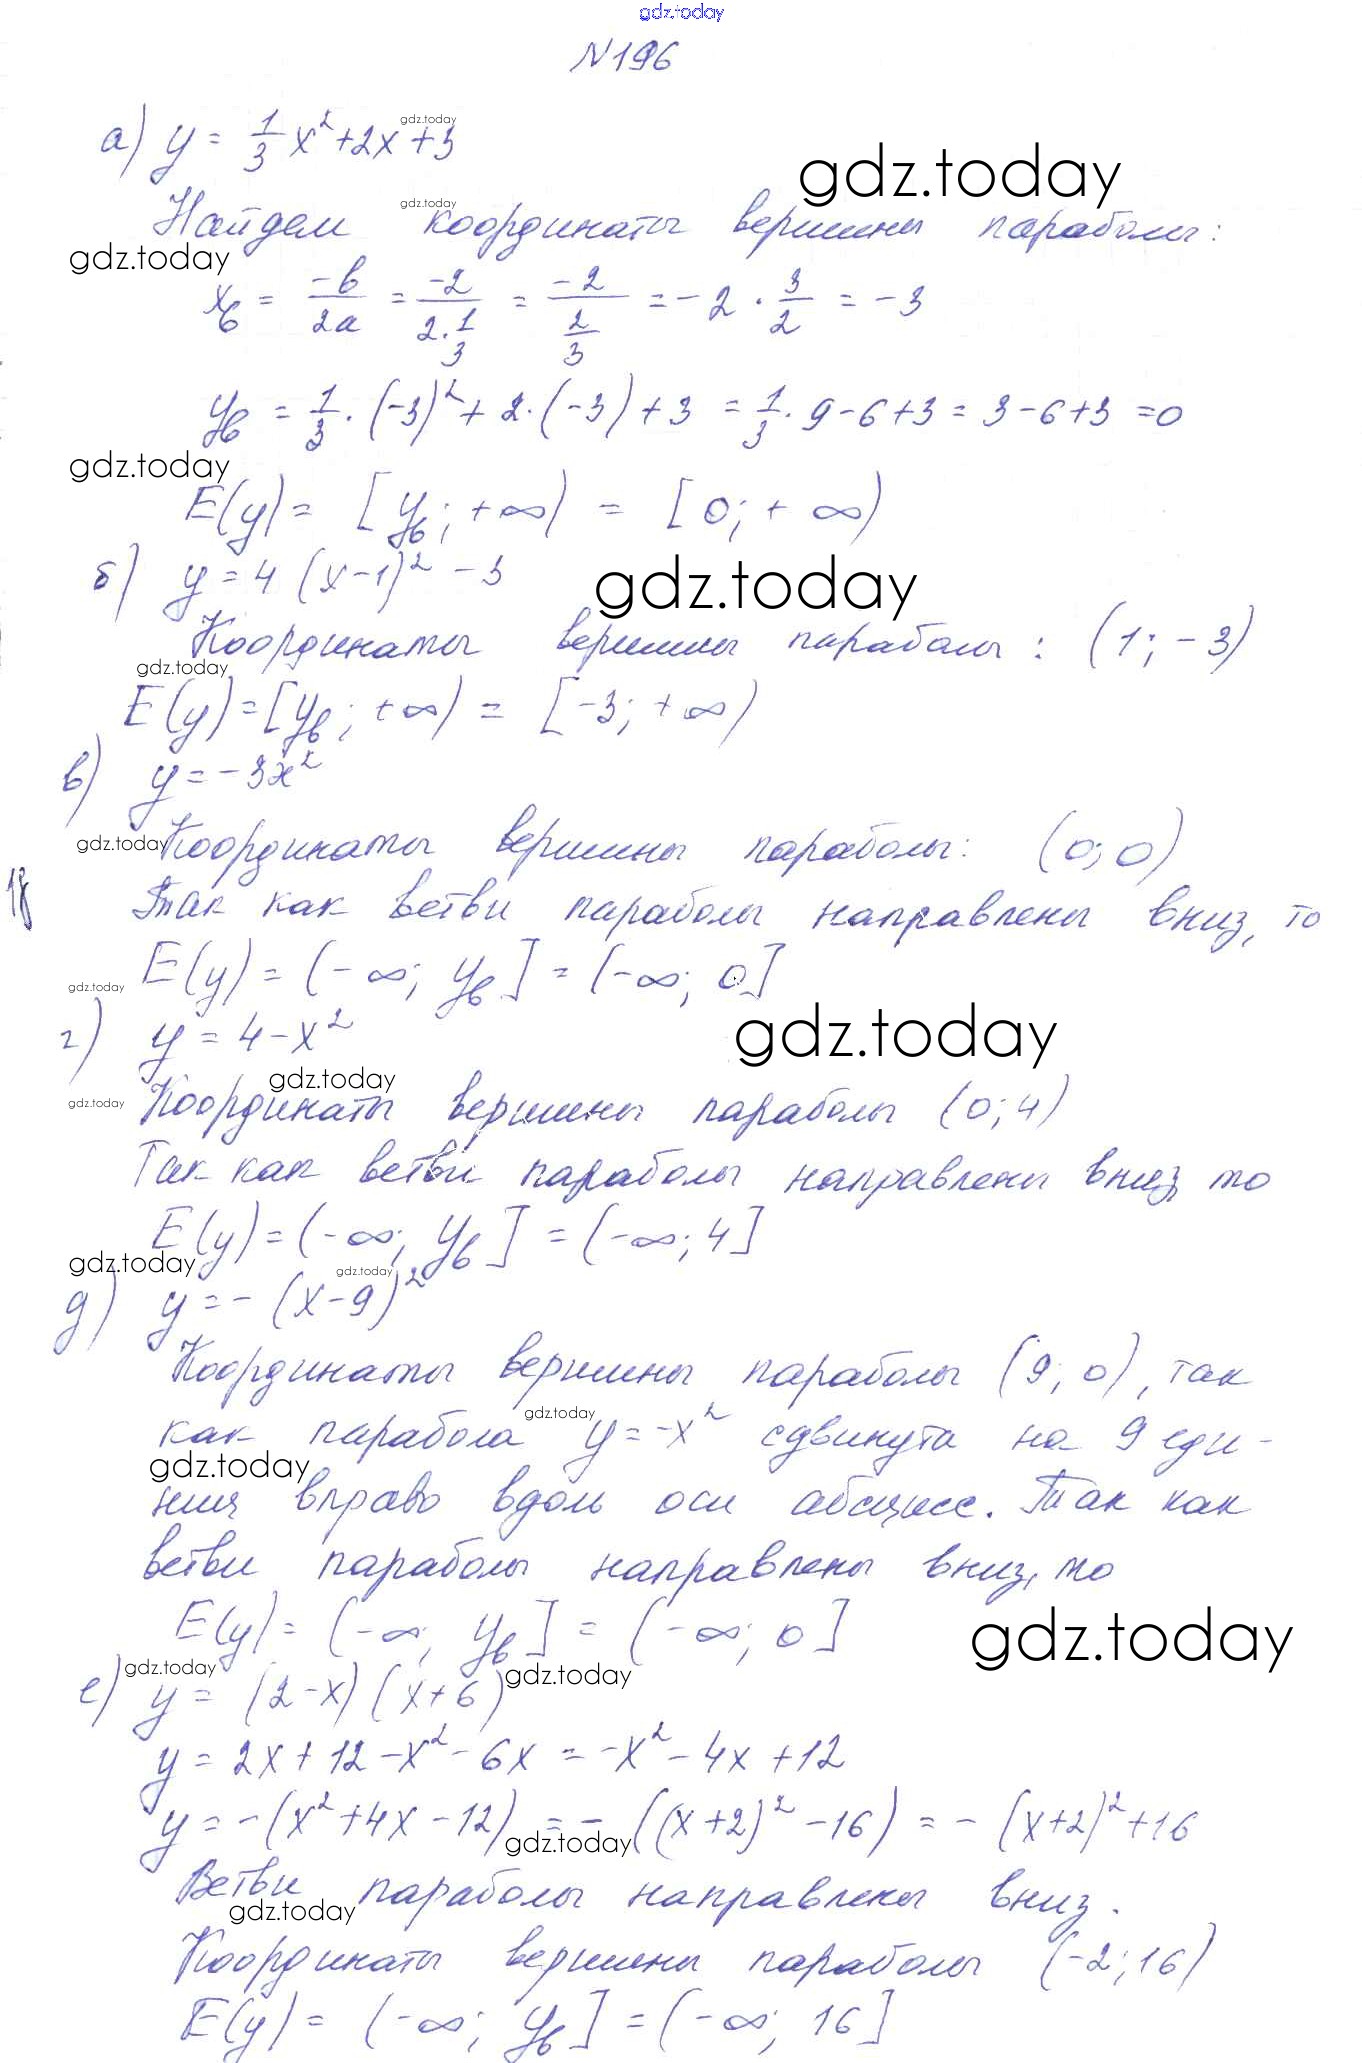 gdz.today
№196
gdz.today
а) y = 1/3 x² + 2x + 3
gdz.today
gdz.today
Найдем координаты вершины параболы:
gdz.today
xв = -b/2a = -2/(2·1/3) = -2/(2/3) = -2 · 3/2 = -3
yв = 1/3 · (-3)² + 2·(-3) + 3 = 1/3 · 9 - 6 + 3 = 3 - 6 + 3 = 0
gdz.today
E(y) = [yв; +∞) = [0; +∞)
б) y = 4(x-1)² - 3
gdz.today
Координаты вершины параболы: (1; -3)
gdz.today
E(y) = [yв; +∞) = [-3; +∞)
в) y = -3x²
gdz.today
Координаты вершины параболы: (0; 0)
18
Так как ветви параболы направлены вниз, то
gdz.today
E(y) = (-∞; yв] = (-∞; 0]
г) y = 4 - x²
gdz.today
gdz.today
gdz.today
Координаты вершины параболы (0; 4)
Так как ветви параболы направлены вниз, то
E(y) = (-∞; yв] = (-∞; 4]
gdz.today
gdz.today
д) y = -(x-9)²
Координаты вершины параболы (9; 0), так
gdz.today
как парабола y = -x² сдвинута на 9 еди-
gdz.today
ниц вправо вдоль оси абсцисс. Так как
ветви параболы направлены вниз, то
E(y) = (-∞; yв] = (-∞; 0]
gdz.today
gdz.today
gdz.today
е) y = (2-x)(x+6)
y = 2x + 12 - x² - 6x = -x² - 4x + 12
y = -(x² + 4x - 12) = -((x+2)² - 16) = -(x+2)² + 16
gdz.today
Ветви параболы направлены вниз.
gdz.today
Координаты вершины параболы (-2; 16)
E(y) = (-∞; yв] = (-∞; 16]